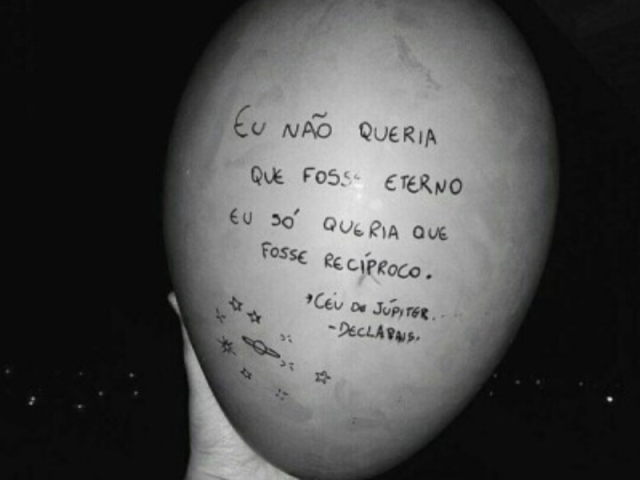 EU NÃO QUERIA
QUE FOSSE ETERNO
EU SÓ QUERIA QUE
FOSSE RECÍPROCO.
CÉU DE JÚPITER.